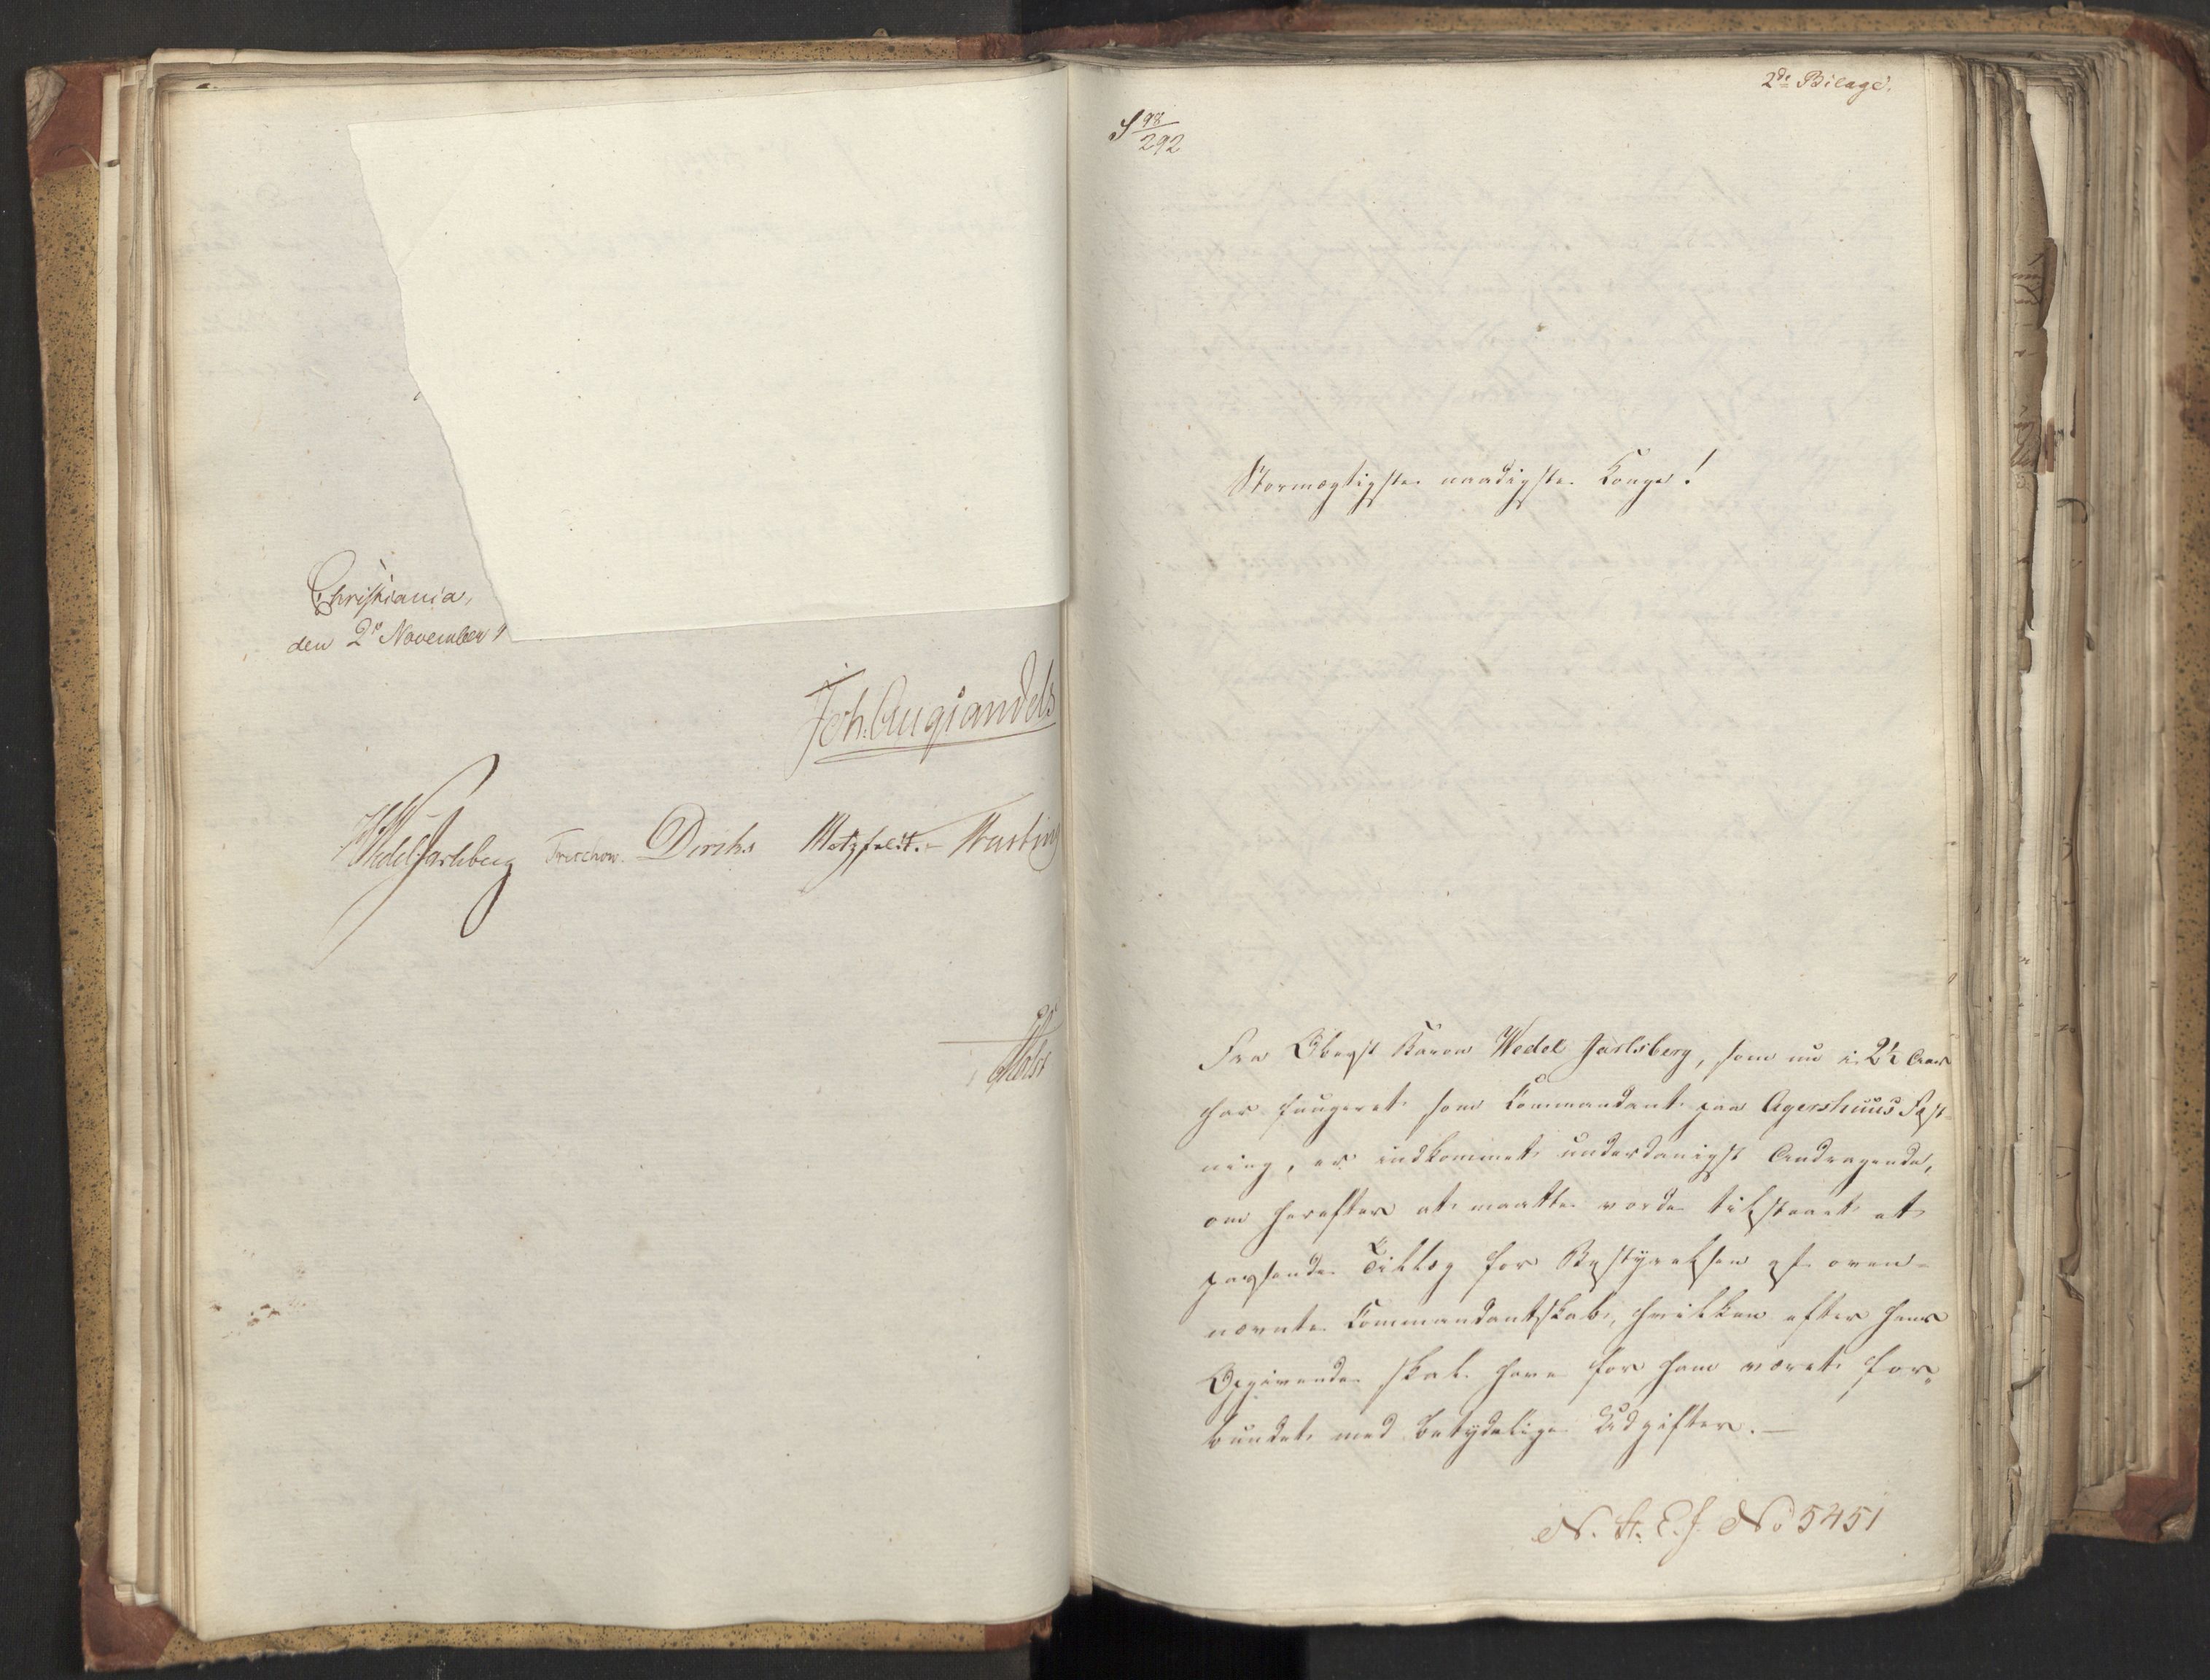 Christiania,
den 2de November
Joh. Aug Sandels
Wedel Jarlsberg Treschow. Diriks Motzfeldt. Fasting
Holst
2de Bilage.
S 98/292
Stormægtigste naadigste Konge!
Fra Oberst Baron Wedel Jarlsberg, som nu i 2½ Aar
har fungeret som Commandant paa Agershuus Fæst-
ning, er indkommet underdanigst Andragende,
om herefter at maatte vorde tilstaaet et
passende Tillæg for Bestyrelsen af oven-
nævnte Commandantskab, hvilken efter hans
Opgivende skal have for ham været for-
bundet med betydelige Udgifter.—
N. St. E. J. No 5451